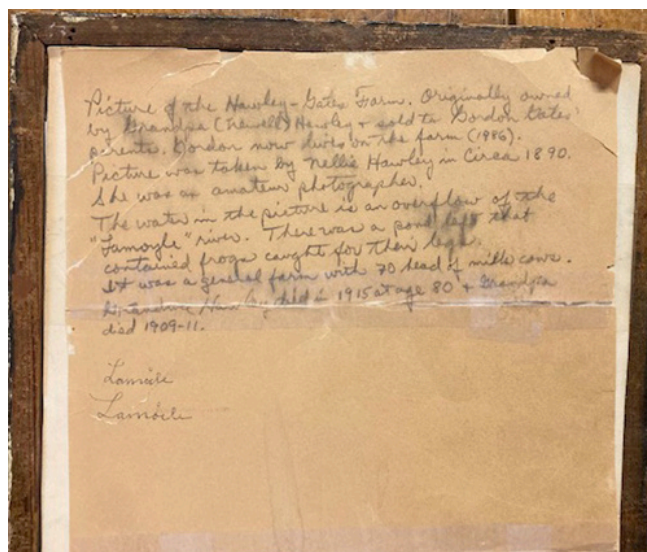 Picture of the Hawley-Gates Farm. Originally owned
by Grandpa (Newell) Hawley + sold to Gordon Gates'
parents. Gordon now lives on the farm (1986).
Picture was taken by Nellie Hawley in Circa 1890.
She was an amateur photographer.
The water in the picture is an overflow of the
"Lamoyle" river. There was a pond left that
contained frogs caught for their legs.
It was a general farm with 70 head of milk cows.
Hawley died in 1915 at age 80 + Grandpa
died 1909-11.
Lamoile
Lamoile